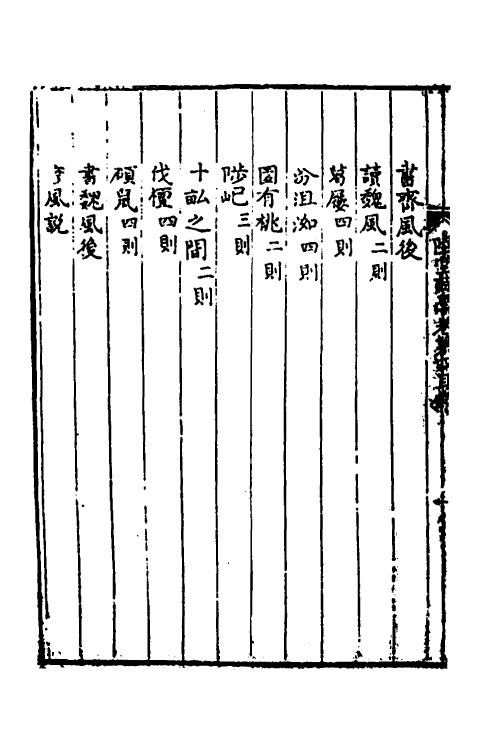 書齊風後
讀魏風二則
葛屨四則
汾沮洳四則
園有桃二則
陟岵三則
十畝之閒二則
伐檀四則
碩鼠四則
書魏風後
風說